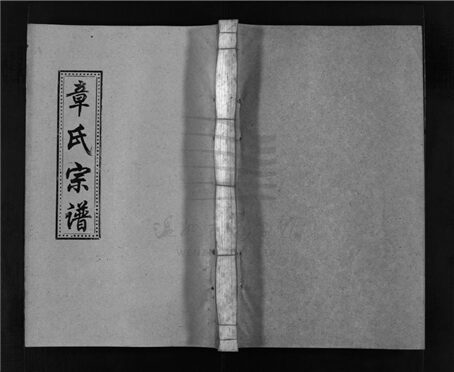 章氏宗谱